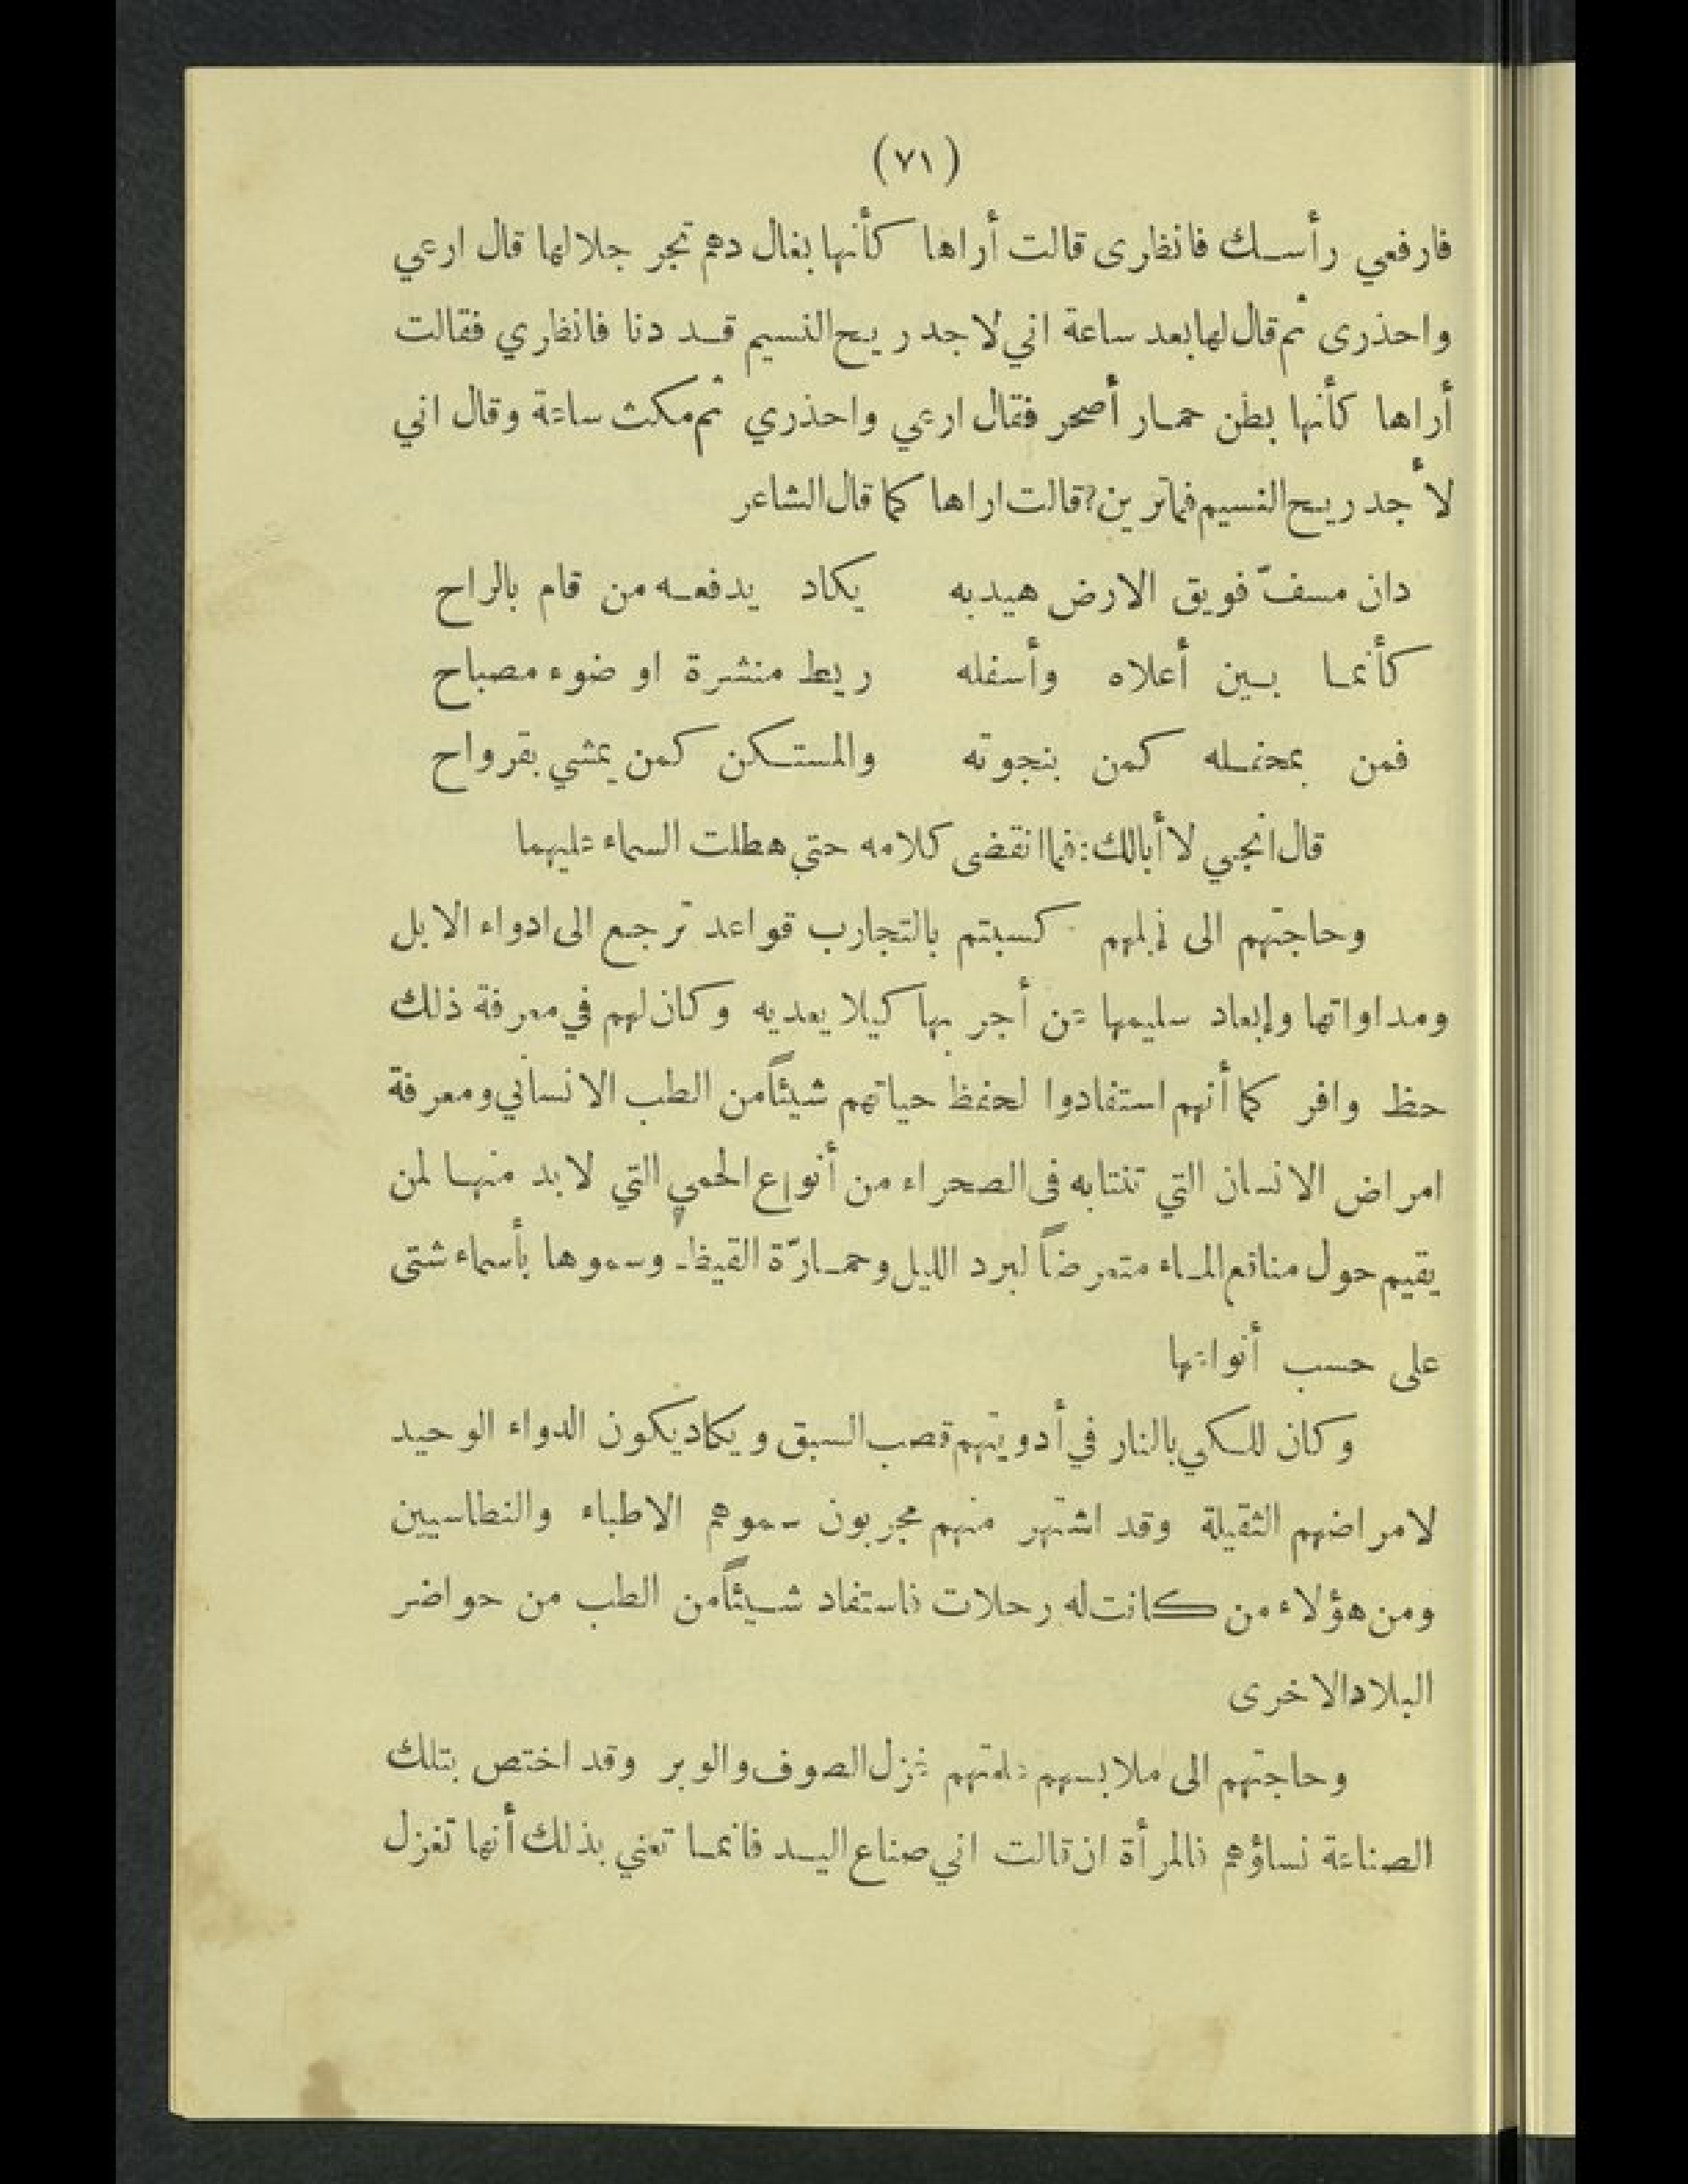 (٧١)
فارفعي رأسك فانظرى قالت أراها كأنها بغال دهم تجر جلالها قال ارعي
واحذرى ثم قال لها بعد ساعة اني لاجد ريح النسيم قد دنا فانظري فقالت
أراها كأنها بطن حمار أصحر فقال ارعي واحذري ثم مكث ساعة وقال اني
لأجد ريح النسيم فما ترين؟ قالت اراها كما قال الشاعر
دان مسفّ فويق الارض هيدبه يكاد يدفعه من قام بالراح
كأنما بين أعلاه وأسفله ريط منشرة او ضوء مصباح
فمن بمحفله كمن بنجوته والمستكن كمن يمشي بقرواح
قال انجبي لا أبالك: فما انقضى كلامه حتى هطلت السماء عليهما
وحاجتهم الى إبلهم كسبتم بالتجارب قواعد ترجع الى ادواء الابل
ومداواتها وإبعاد سليمها عن أجر بها كيلا يعديه وكان لهم في معرفة ذلك
حظ وافر كما أنهم استفادوا لحفظ حياتهم شيئاً من الطب الانساني ومعرفة
امراض الانسان التي تنتابه فى الصحراء من أنواع الحمي التي لابد منها لمن
يقيم حول مناقع الماء متعرضاً لبرد الليل وحمارّة القيظ وسموها بأسماء شتى
على حسب أنواعها
وكان للكي بالنار في أدويتهم قصب السبق ويكاد يكون الدواء الوحيد
لامراضهم الثقيلة وقد اشتهر منهم مجربون سموهم الاطباء والنطاسيين
ومن هؤلاء من كانت له رحلات فاستفاد شيئاً من الطب من حواضر
البلاد الاخرى
وحاجتهم الى ملابسهم علمتهم غزل الصوف والوبر وقد اختص بتلك
الصناعة نساؤهم فالمرأة ان قالت اني صناع اليد فانما تعني بذلك أنها تغزل